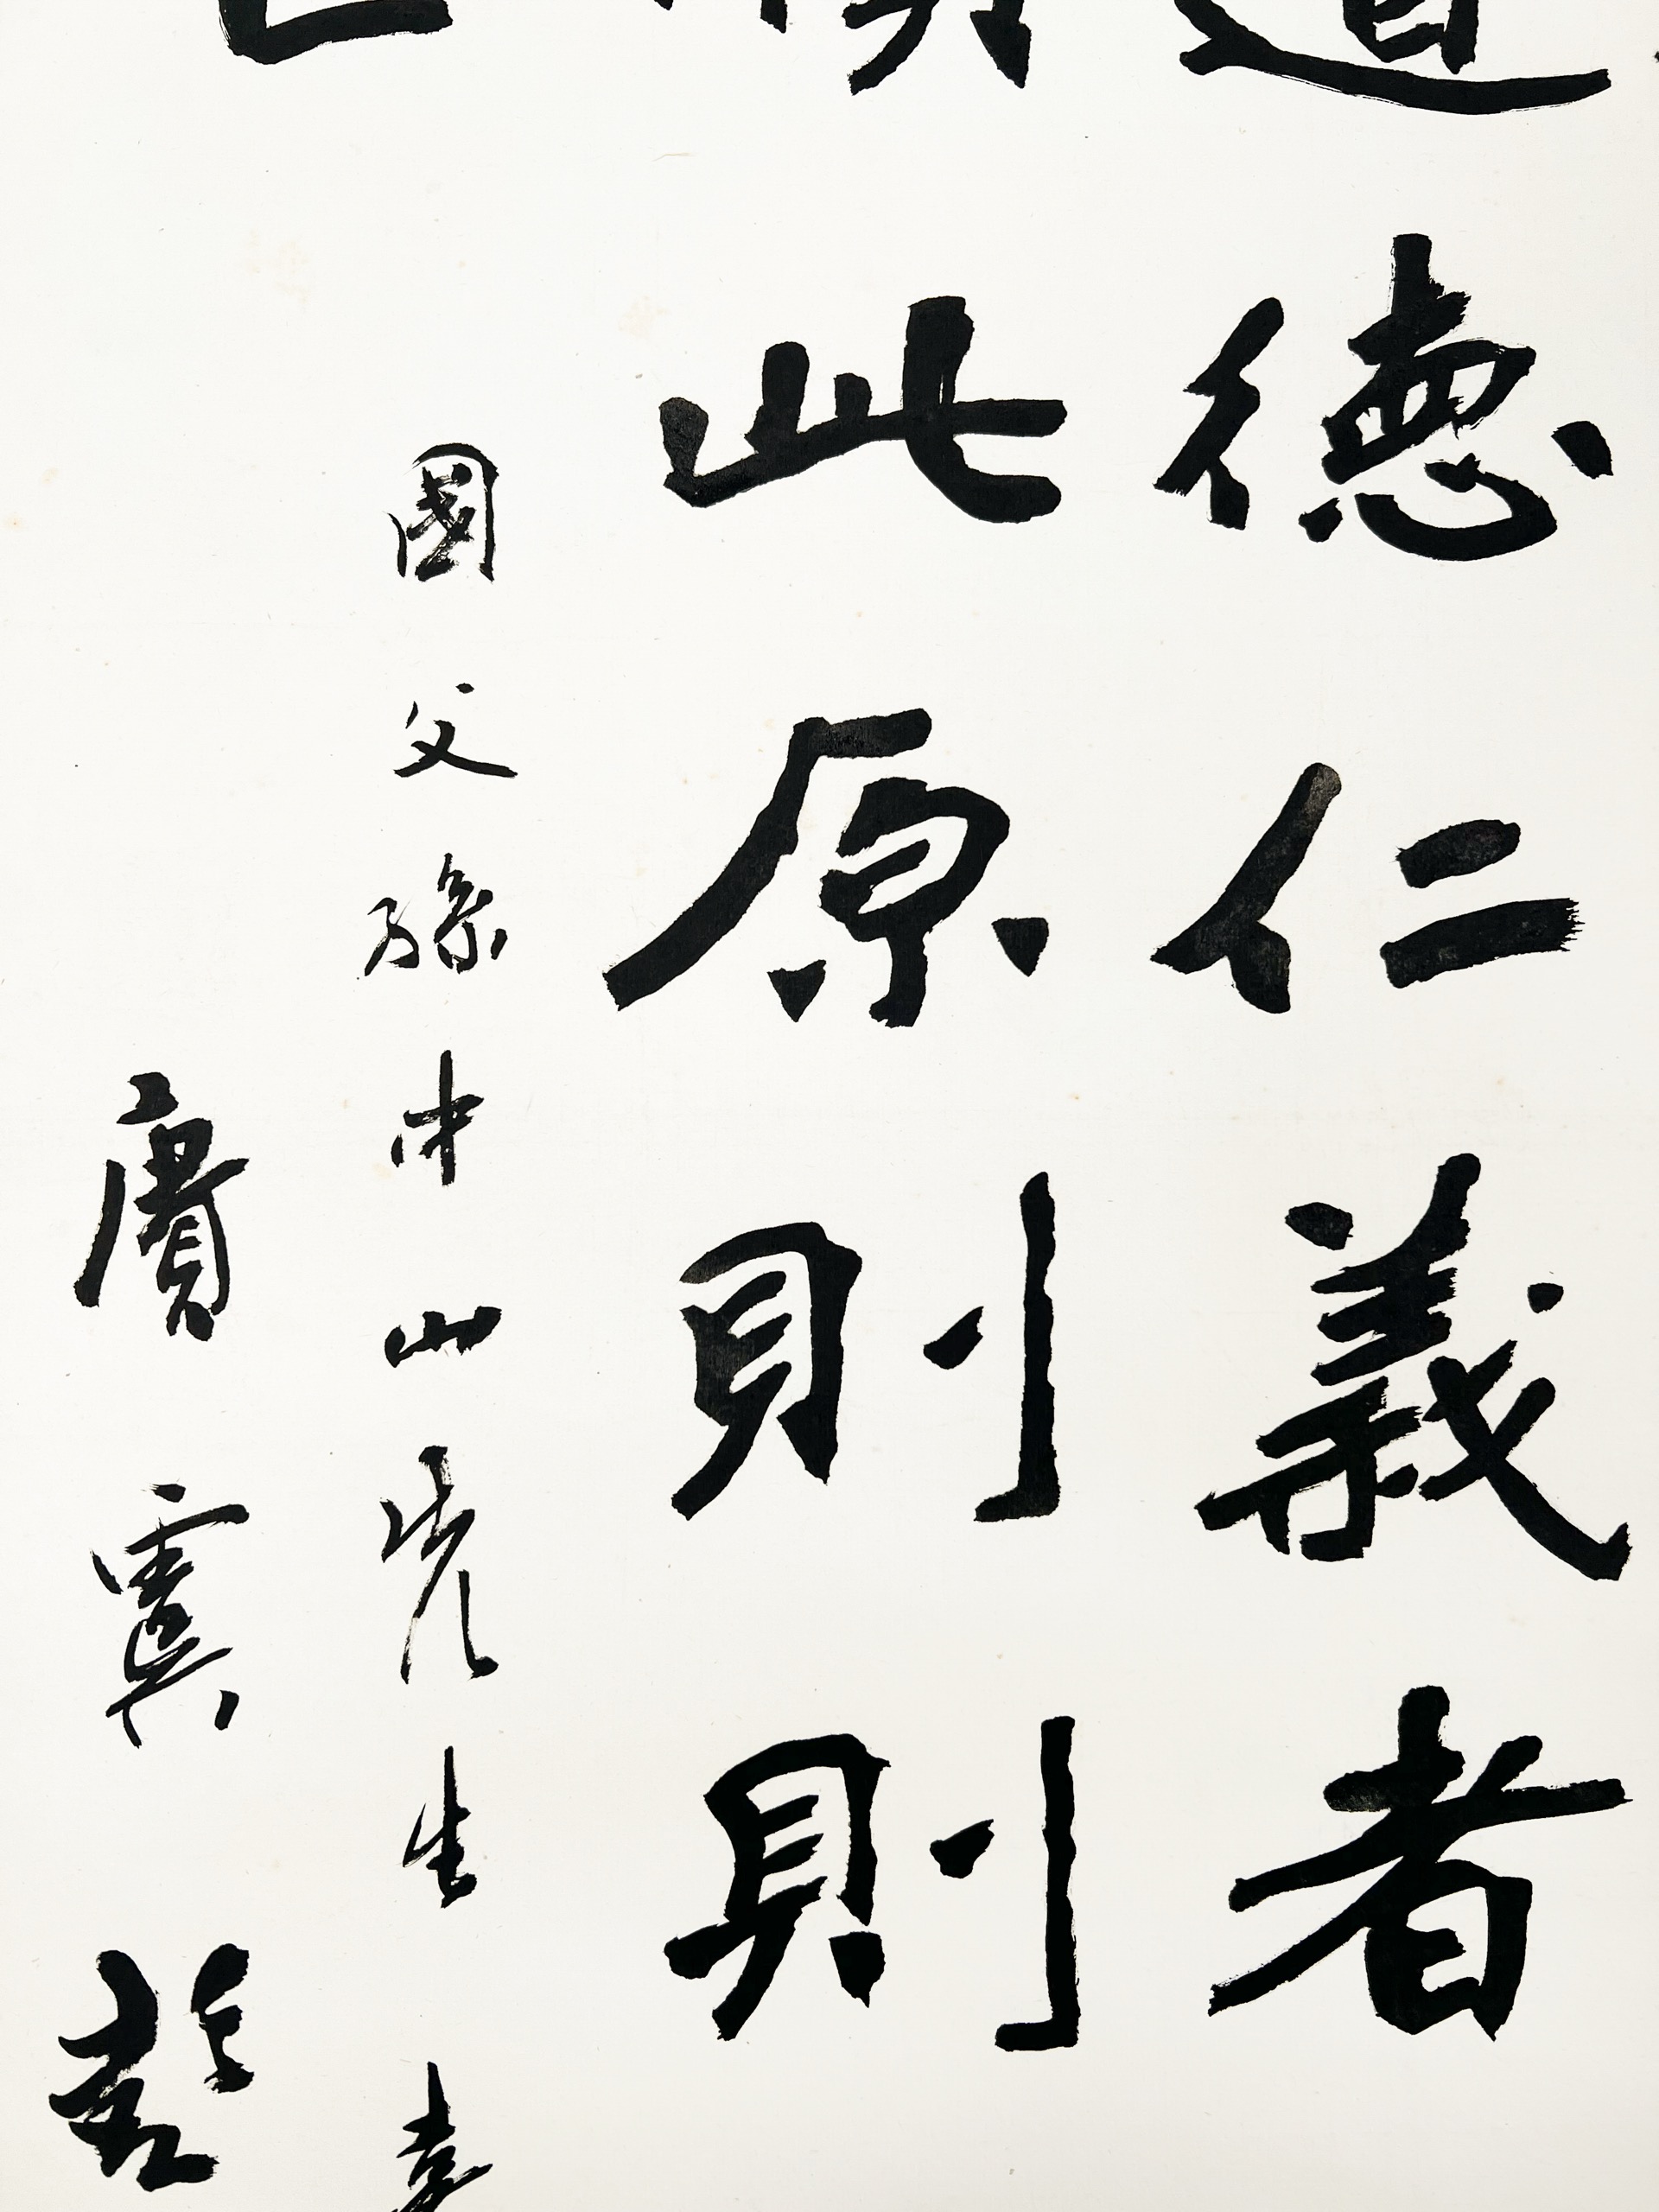 道德仁義者
此原則則
國父孫中山先生
賡虞